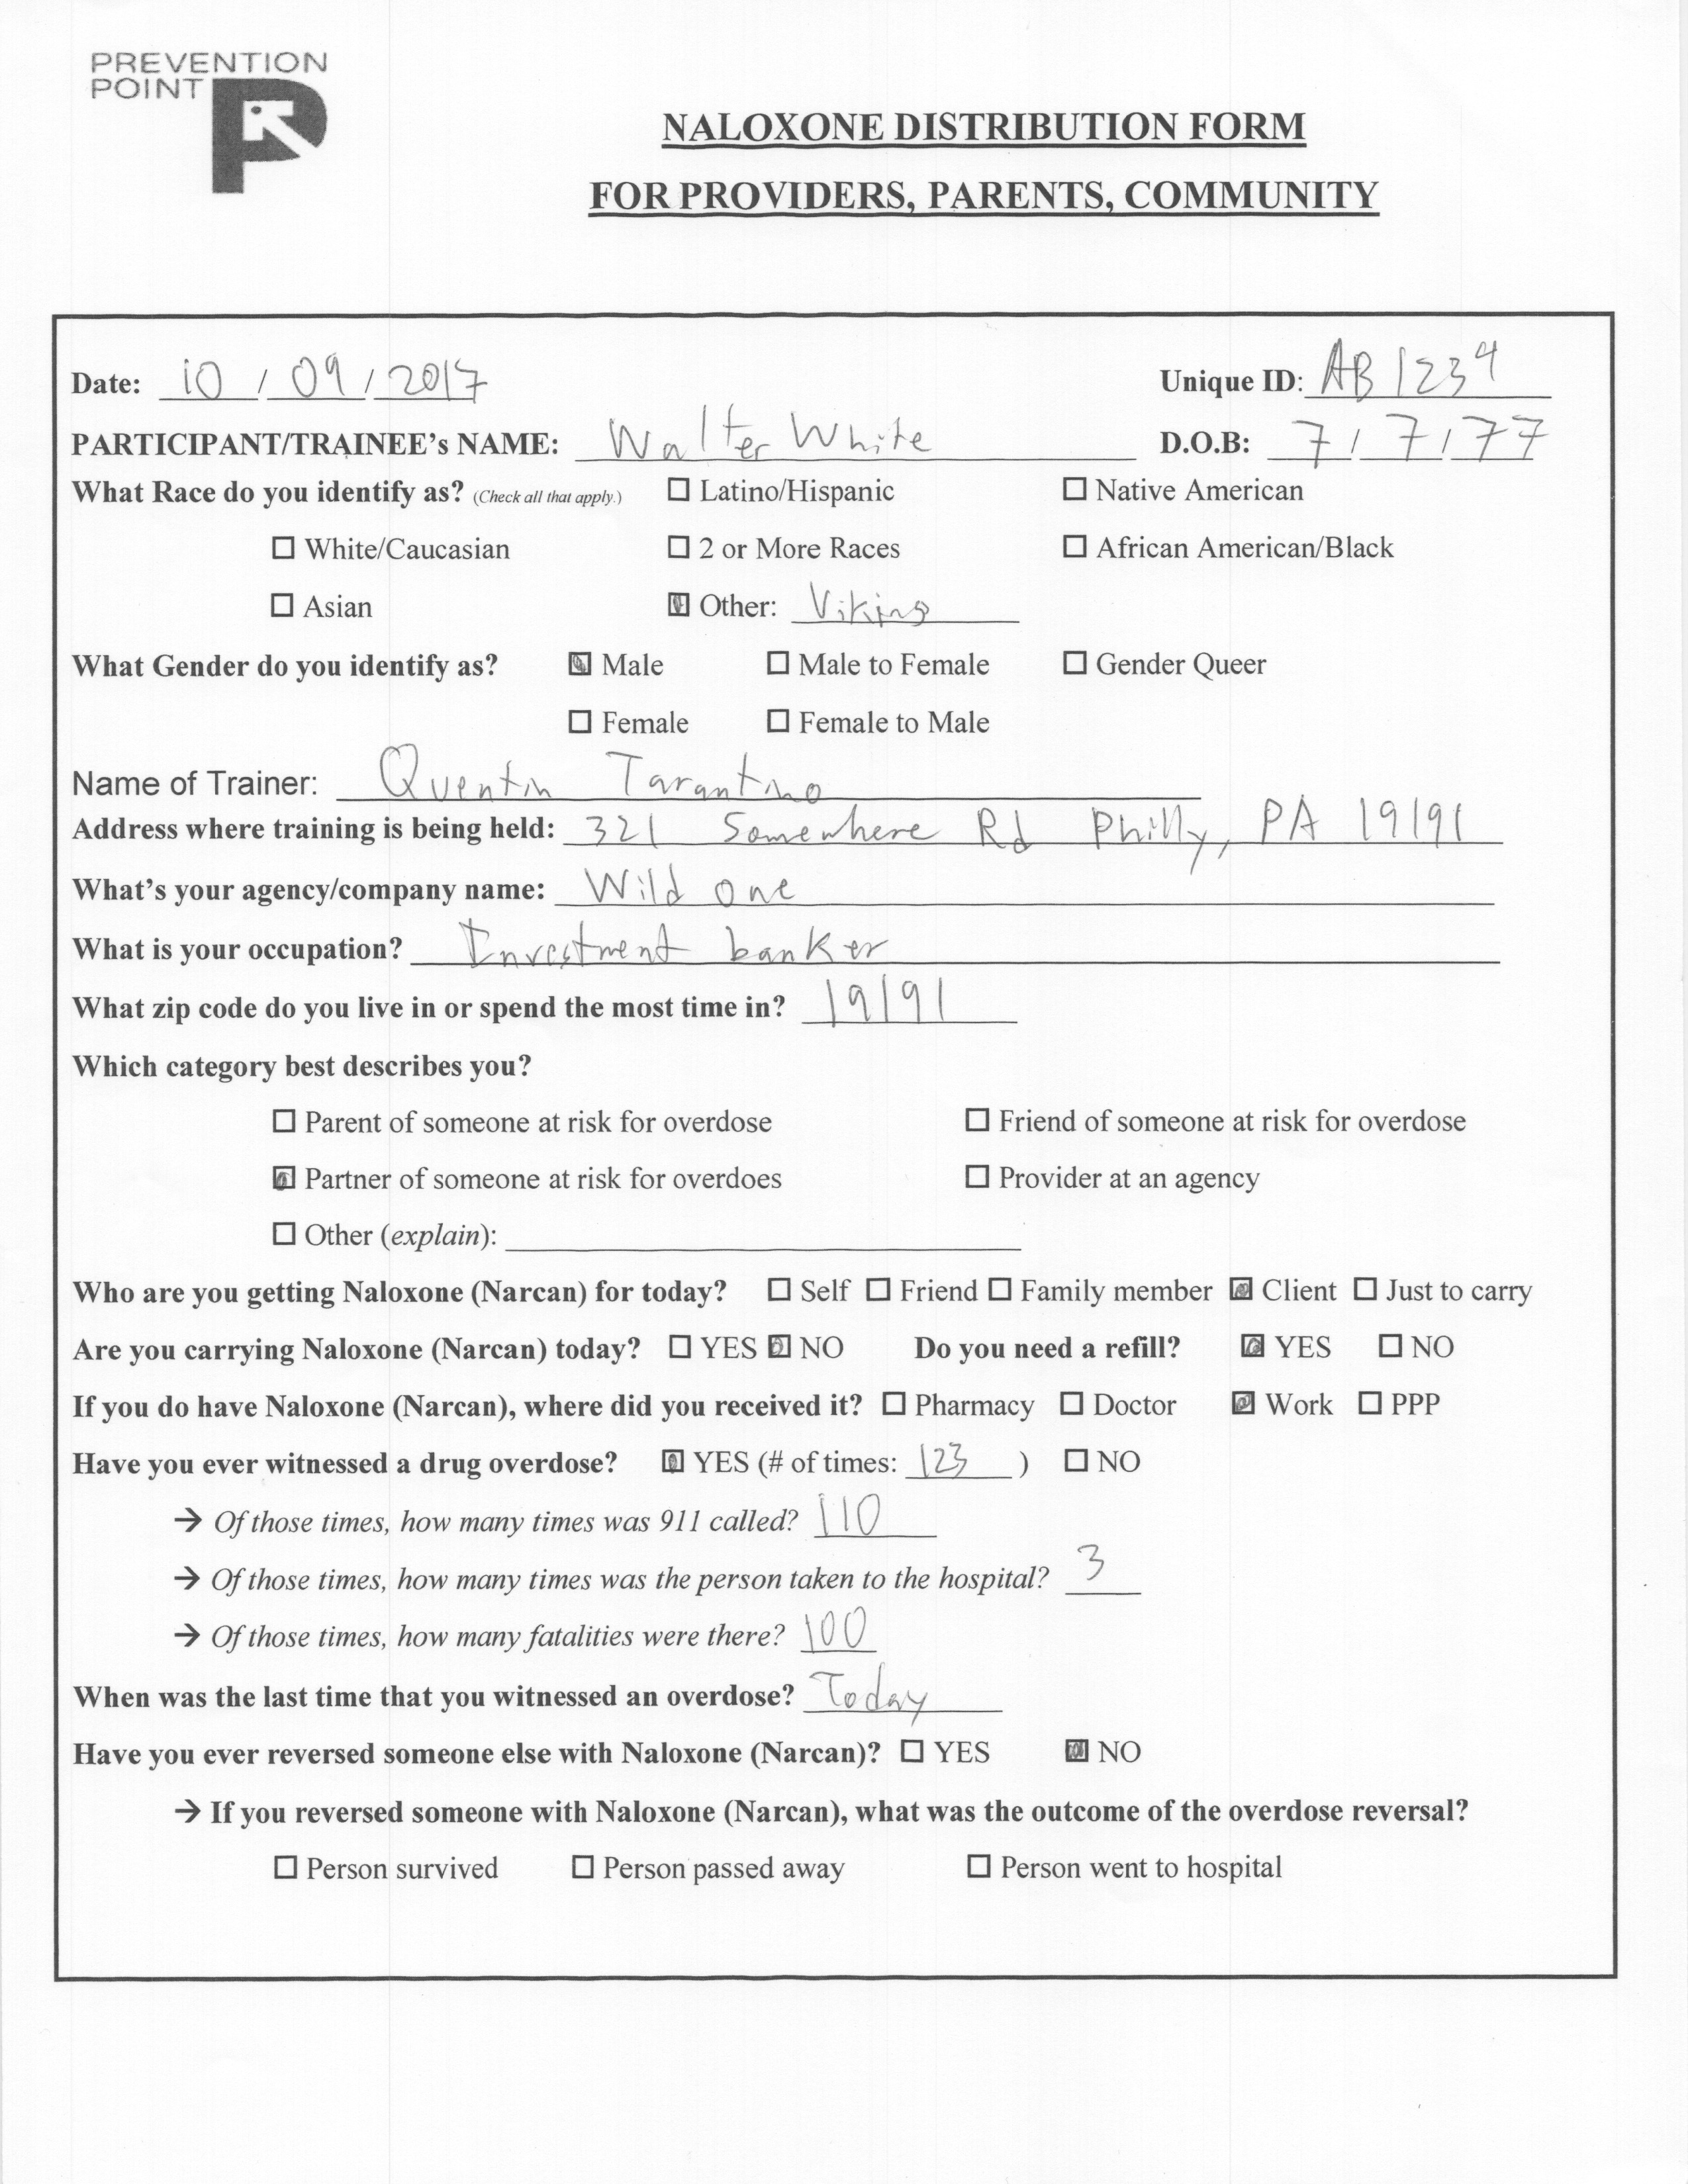 PREVENTION
POINT
NALOXONE DISTRIBUTION FORM
FOR PROVIDERS, PARENTS, COMMUNITY
Date: 10 / 09 / 2017 Unique ID: AB1234
PARTICIPANT/TRAINEE's NAME: Walter White D.O.B: 7 / 7 / 77
What Race do you identify as? (Check all that apply.) ☐ Latino/Hispanic ☐ Native American
☐ White/Caucasian ☐ 2 or More Races ☐ African American/Black
☐ Asian ☒ Other: Viking
What Gender do you identify as? ☒ Male ☐ Male to Female ☐ Gender Queer
☐ Female ☐ Female to Male
Name of Trainer: Quentin Tarantino
Address where training is being held: 321 Somewhere Rd Philly, PA 19191
What's your agency/company name: Wild one
What is your occupation? Investment banker
What zip code do you live in or spend the most time in? 19191
Which category best describes you?
☐ Parent of someone at risk for overdose ☐ Friend of someone at risk for overdose
☒ Partner of someone at risk for overdoes ☐ Provider at an agency
☐ Other (explain):
Who are you getting Naloxone (Narcan) for today? ☐ Self ☐ Friend ☐ Family member ☒ Client ☐ Just to carry
Are you carrying Naloxone (Narcan) today? ☐ YES ☒ NO Do you need a refill? ☒ YES ☐ NO
If you do have Naloxone (Narcan), where did you received it? ☐ Pharmacy ☐ Doctor ☒ Work ☐ PPP
Have you ever witnessed a drug overdose? ☒ YES (# of times: 123 ) ☐ NO
→ Of those times, how many times was 911 called? 110
→ Of those times, how many times was the person taken to the hospital? 3
→ Of those times, how many fatalities were there? 100
When was the last time that you witnessed an overdose? Today
Have you ever reversed someone else with Naloxone (Narcan)? ☐ YES ☒ NO
→ If you reversed someone with Naloxone (Narcan), what was the outcome of the overdose reversal?
☐ Person survived ☐ Person passed away ☐ Person went to hospital